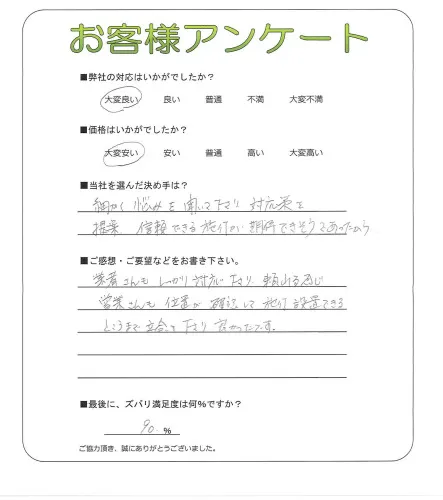 お客様アンケート
■弊社の対応はいかがでしたか?
大変良い 良い 普通 不満 大変不満
■価格はいかがでしたか?
大変安い 安い 普通 高い 大変高い
■当社を選んだ決め手は?
細かく悩みを聞いて下さり 対応策を
提案 信頼できる施行が期待できそうであったから
■ご感想・ご要望などをお書き下さい。
業者さんもしっかり対応下さり、頼れる感じ
営業さんも位置が確認して施行設置できる
ところまで立会って下さり 良かったです。
■最後に、ズバリ満足度は何%ですか?
90 %
ご協力頂き、誠にありがとうございました。